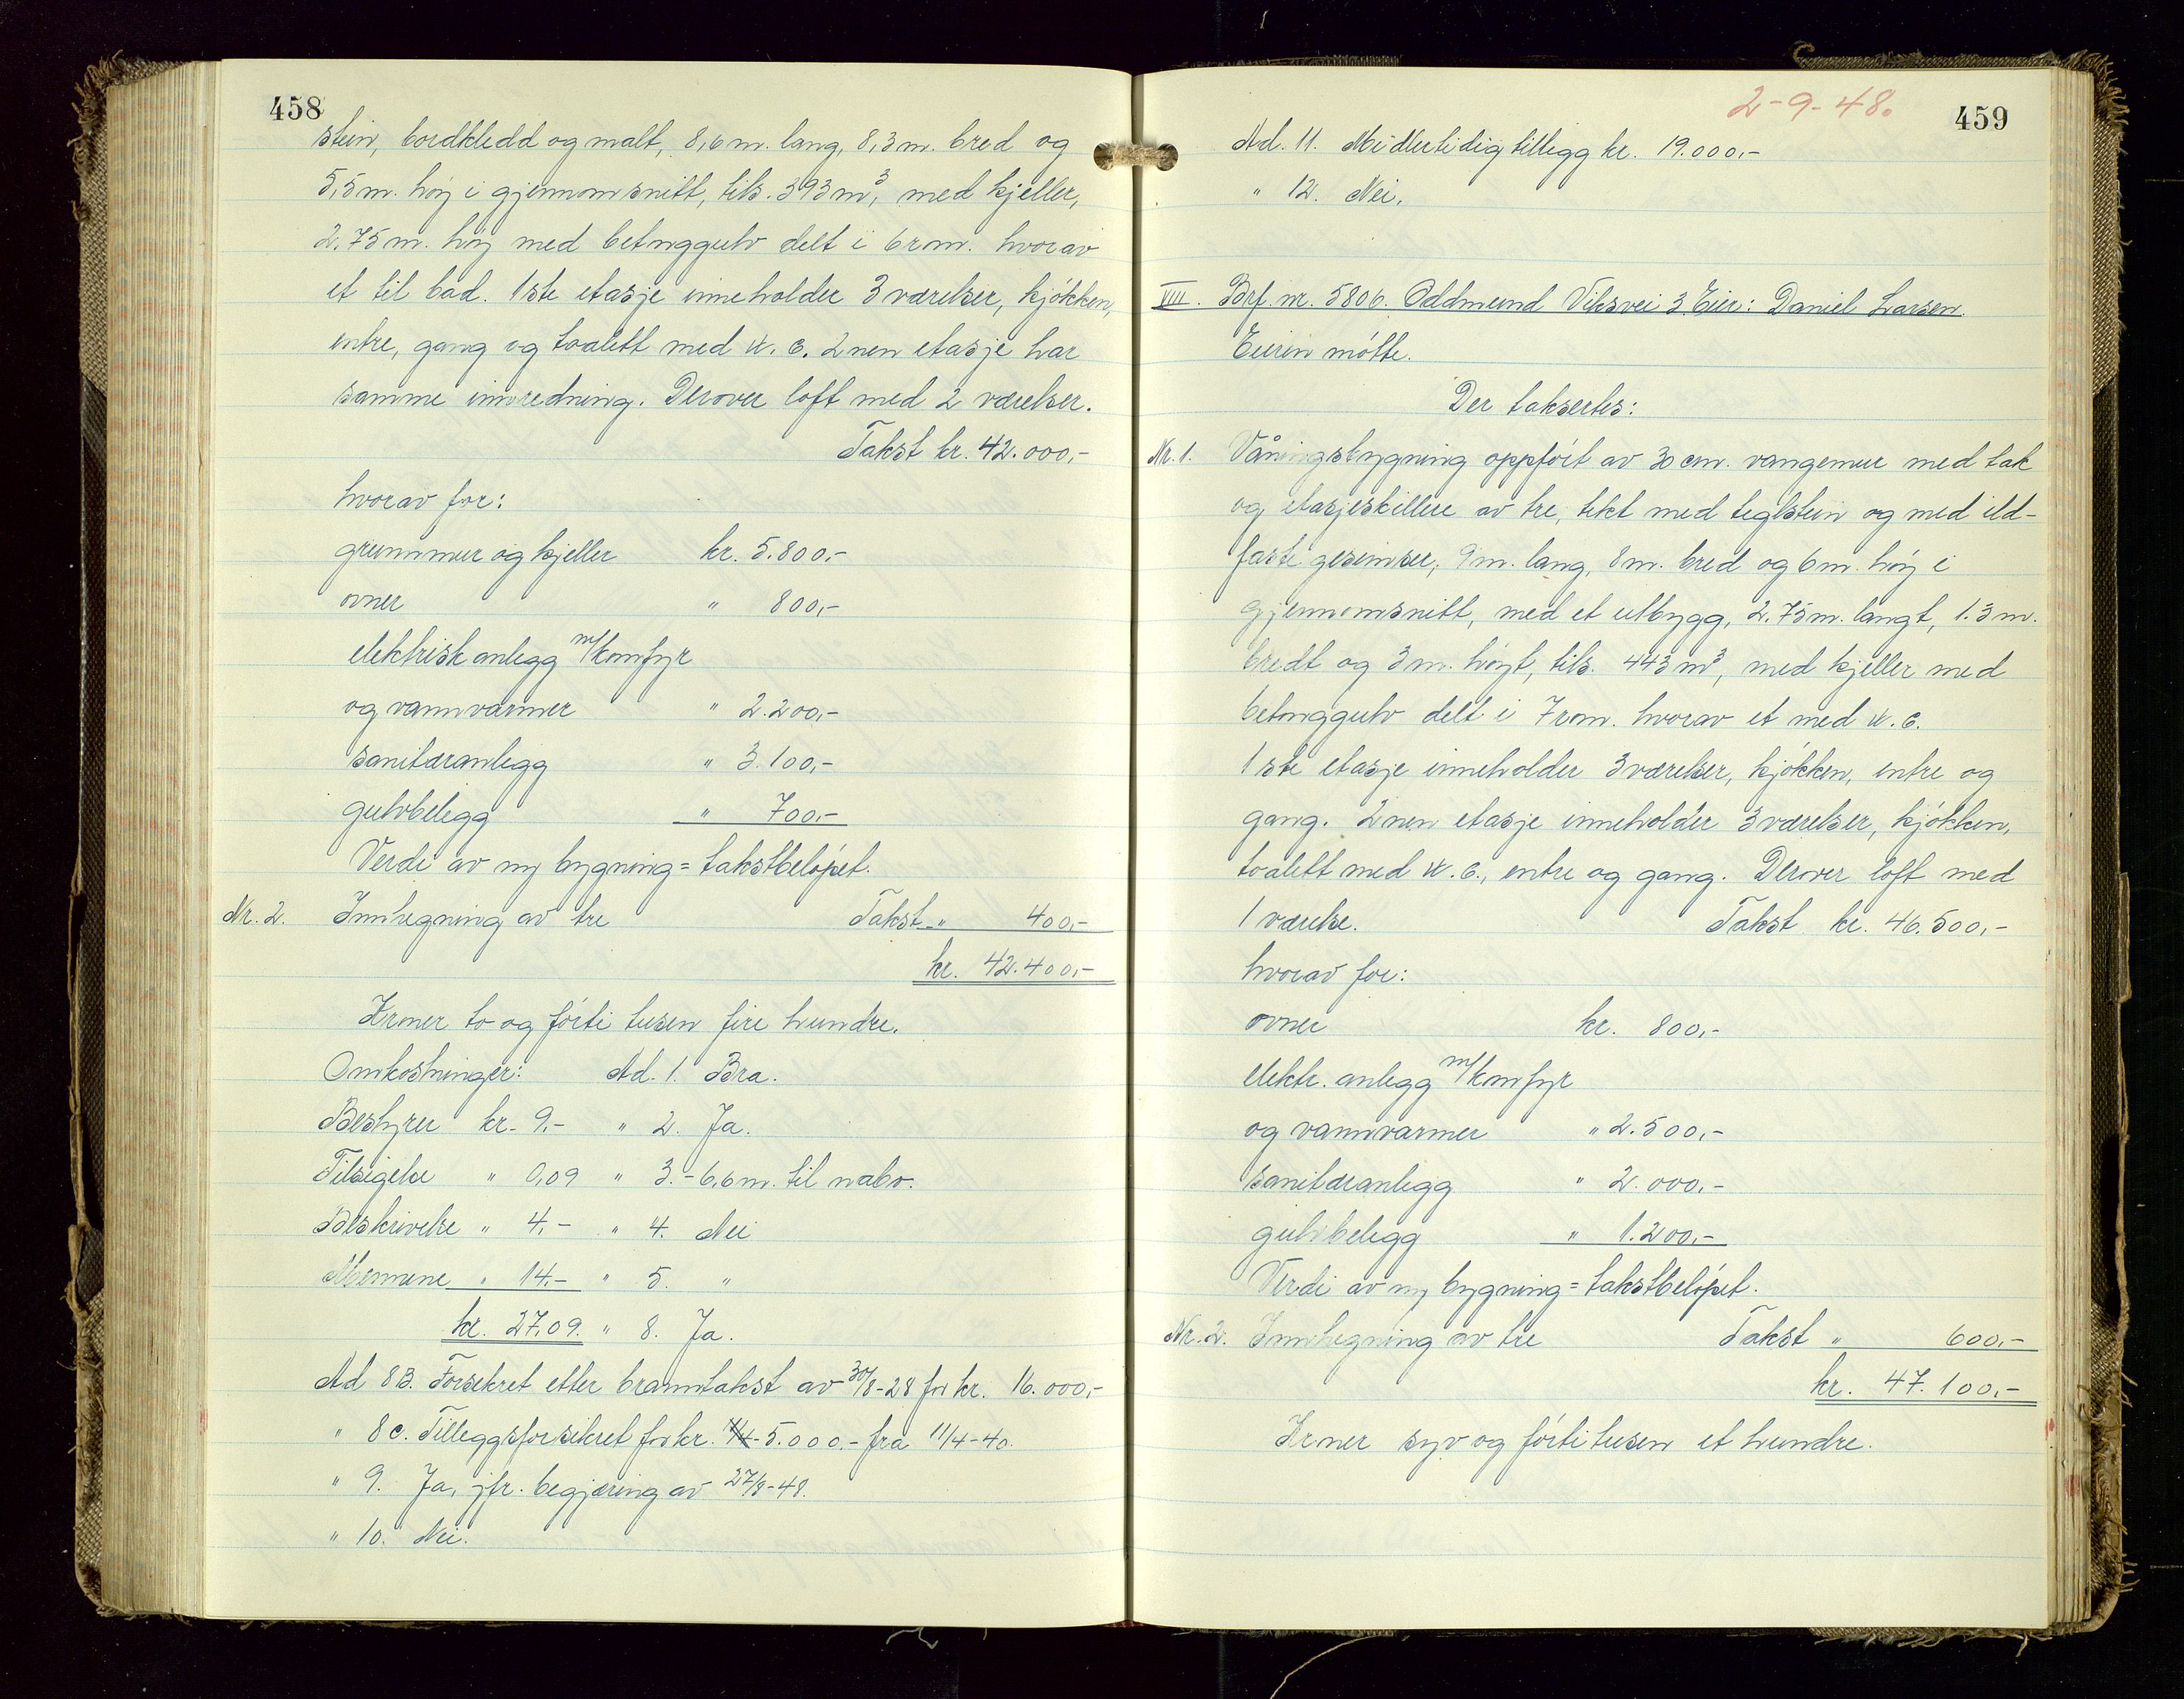 458
stein, bordkledd og malt, 8,6 m. lang, 8,3 m. bred og
5,5 m. høy i gjennomsnitt, tils. 393 m³, med kjeller,
2,75 m. høy med betonggulv delt i 6 rom. hvorav
et til bad. 1ste etasje inneholder 3 værelser, kjøkken,
entre, gang og toalett med W.C. 2nen etasje har
samme innredning. Derover loft med 2 værelser.
Takst kr. 42.000,-
hvorav for:
grunnmur og kjeller kr. 5.800,-
ovner " 800,-
elektrisk anlegg m/komfyr
og vannvarmer " 2.200,-
sanitæranlegg " 3.100,-
gulvbelegg " 700,-
Verdi av ny bygning = takstbeløpet.
Nr. 2. Innhegning av tre Takst " 400,-
kr. 42.400,-
Kroner to og førti tusen fire hundre.
Omkostninger: Ad. 1. Bra.
Bestyrer kr. 9,- " 2. Ja.
Tilsigelse " 0,09 " 3. - 6,6 m. til nabo.
Beskrivelse " 4,- " 4. Nei
Mennene " 14,- " 5. "
kr. 27,09. " 8. Ja.
Ad 8B. Forsikret etter branntakst av 30/8-28 for kr. 16.000,-
" 8c. Tilleggsforsikret for kr. 5.000,- fra 11/4-40.
" 9. Ja, jfr. begjæring av 27/8-48.
" 10. Nei.
2-9-48.
459
Ad. 11. Midlertidig tillegg kr. 19.000,-
" 12. Nei.
VIII. Brf. nr. 5806. Oddmund Viksvei 3. Eier: Daniel Larsen.
Eieren møtte.
Der taksertes:
Nr. 1. Våningsbygning oppført av 30 cm. vangemur med tak
og etasjeskillere av tre, tekt med teglstein og med ild-
faste gesimser, 9 m. lang, 8 m. bred og 6 m. høy i
gjennomsnitt, med et utbygg, 2,75 m. langt, 1.3 m.
bredt og 3 m. høyt, tils. 443 m³, med kjeller med
betonggulv delt i 7 rom. hvorav et med W.C.
1ste etasje inneholder 3 værelser, kjøkken, entre og
gang. 2nen etasje inneholder 3 værelser, kjøkken,
toalett med W.C., entre og gang. Derover loft med
1 værelse. Takst kr. 46.500,-
hvorav for:
ovner kr. 800,-
elektr. anlegg m/komfyr
og vannvarmer " 2.500,-
sanitæranlegg " 2.000,-
gulvbelegg " 1.200,-
Verdi av ny bygning = takstbeløpet.
Nr. 2. Innhegning av tre Takst " 600,-
kr. 47.100,-
Kroner syv og førti tusen et hundre.